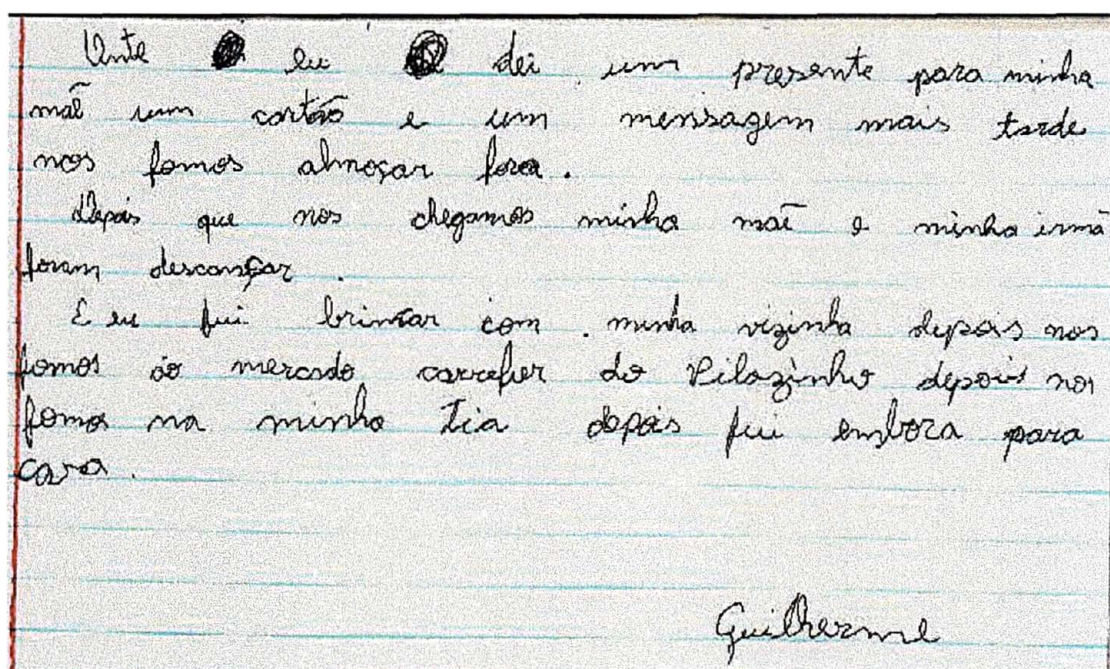 Onte eu dei um presente para minha
mãe um cartão e um mensagem mais tarde
nos fomos almoçar fora.
depois que nos chegamos minha mãe e minha irmã
foram descançar.
E eu fui brincar com minha vizinha depois nos
fomos ao mercado carrefer do Pilazinho depois nos
fomos na minha tia depois fui embora para
casa.
Guilherme